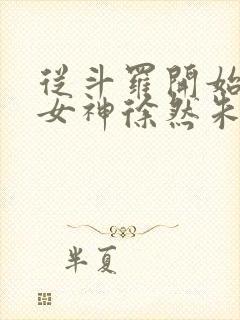 從斗羅開始
女神徐然朱
半夏